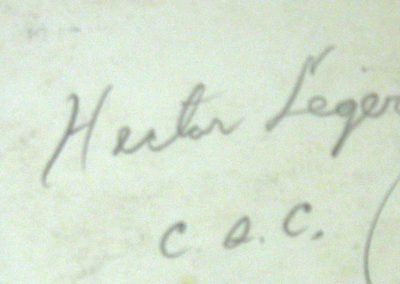 Hector Leger
C.O.C.